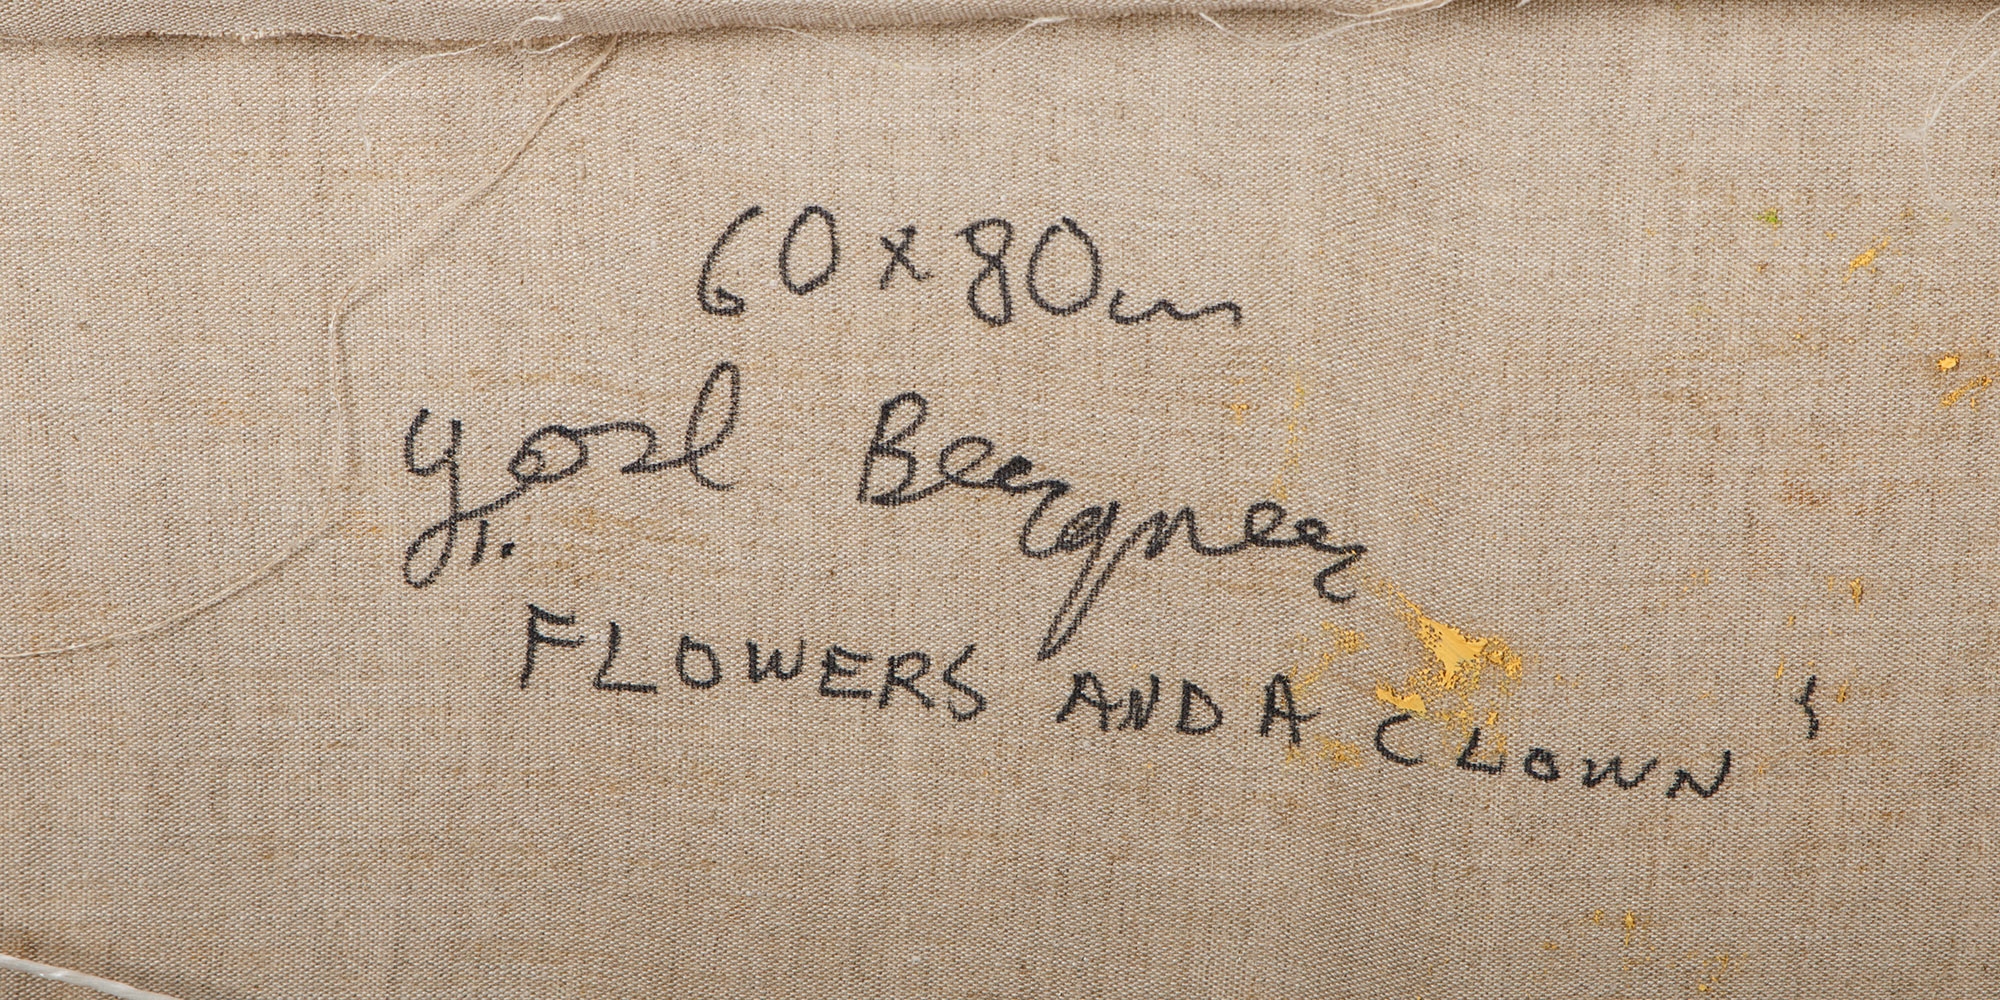 60 x 80 cm
Yosl Bergner
" FLOWERS AND A CLOWN "